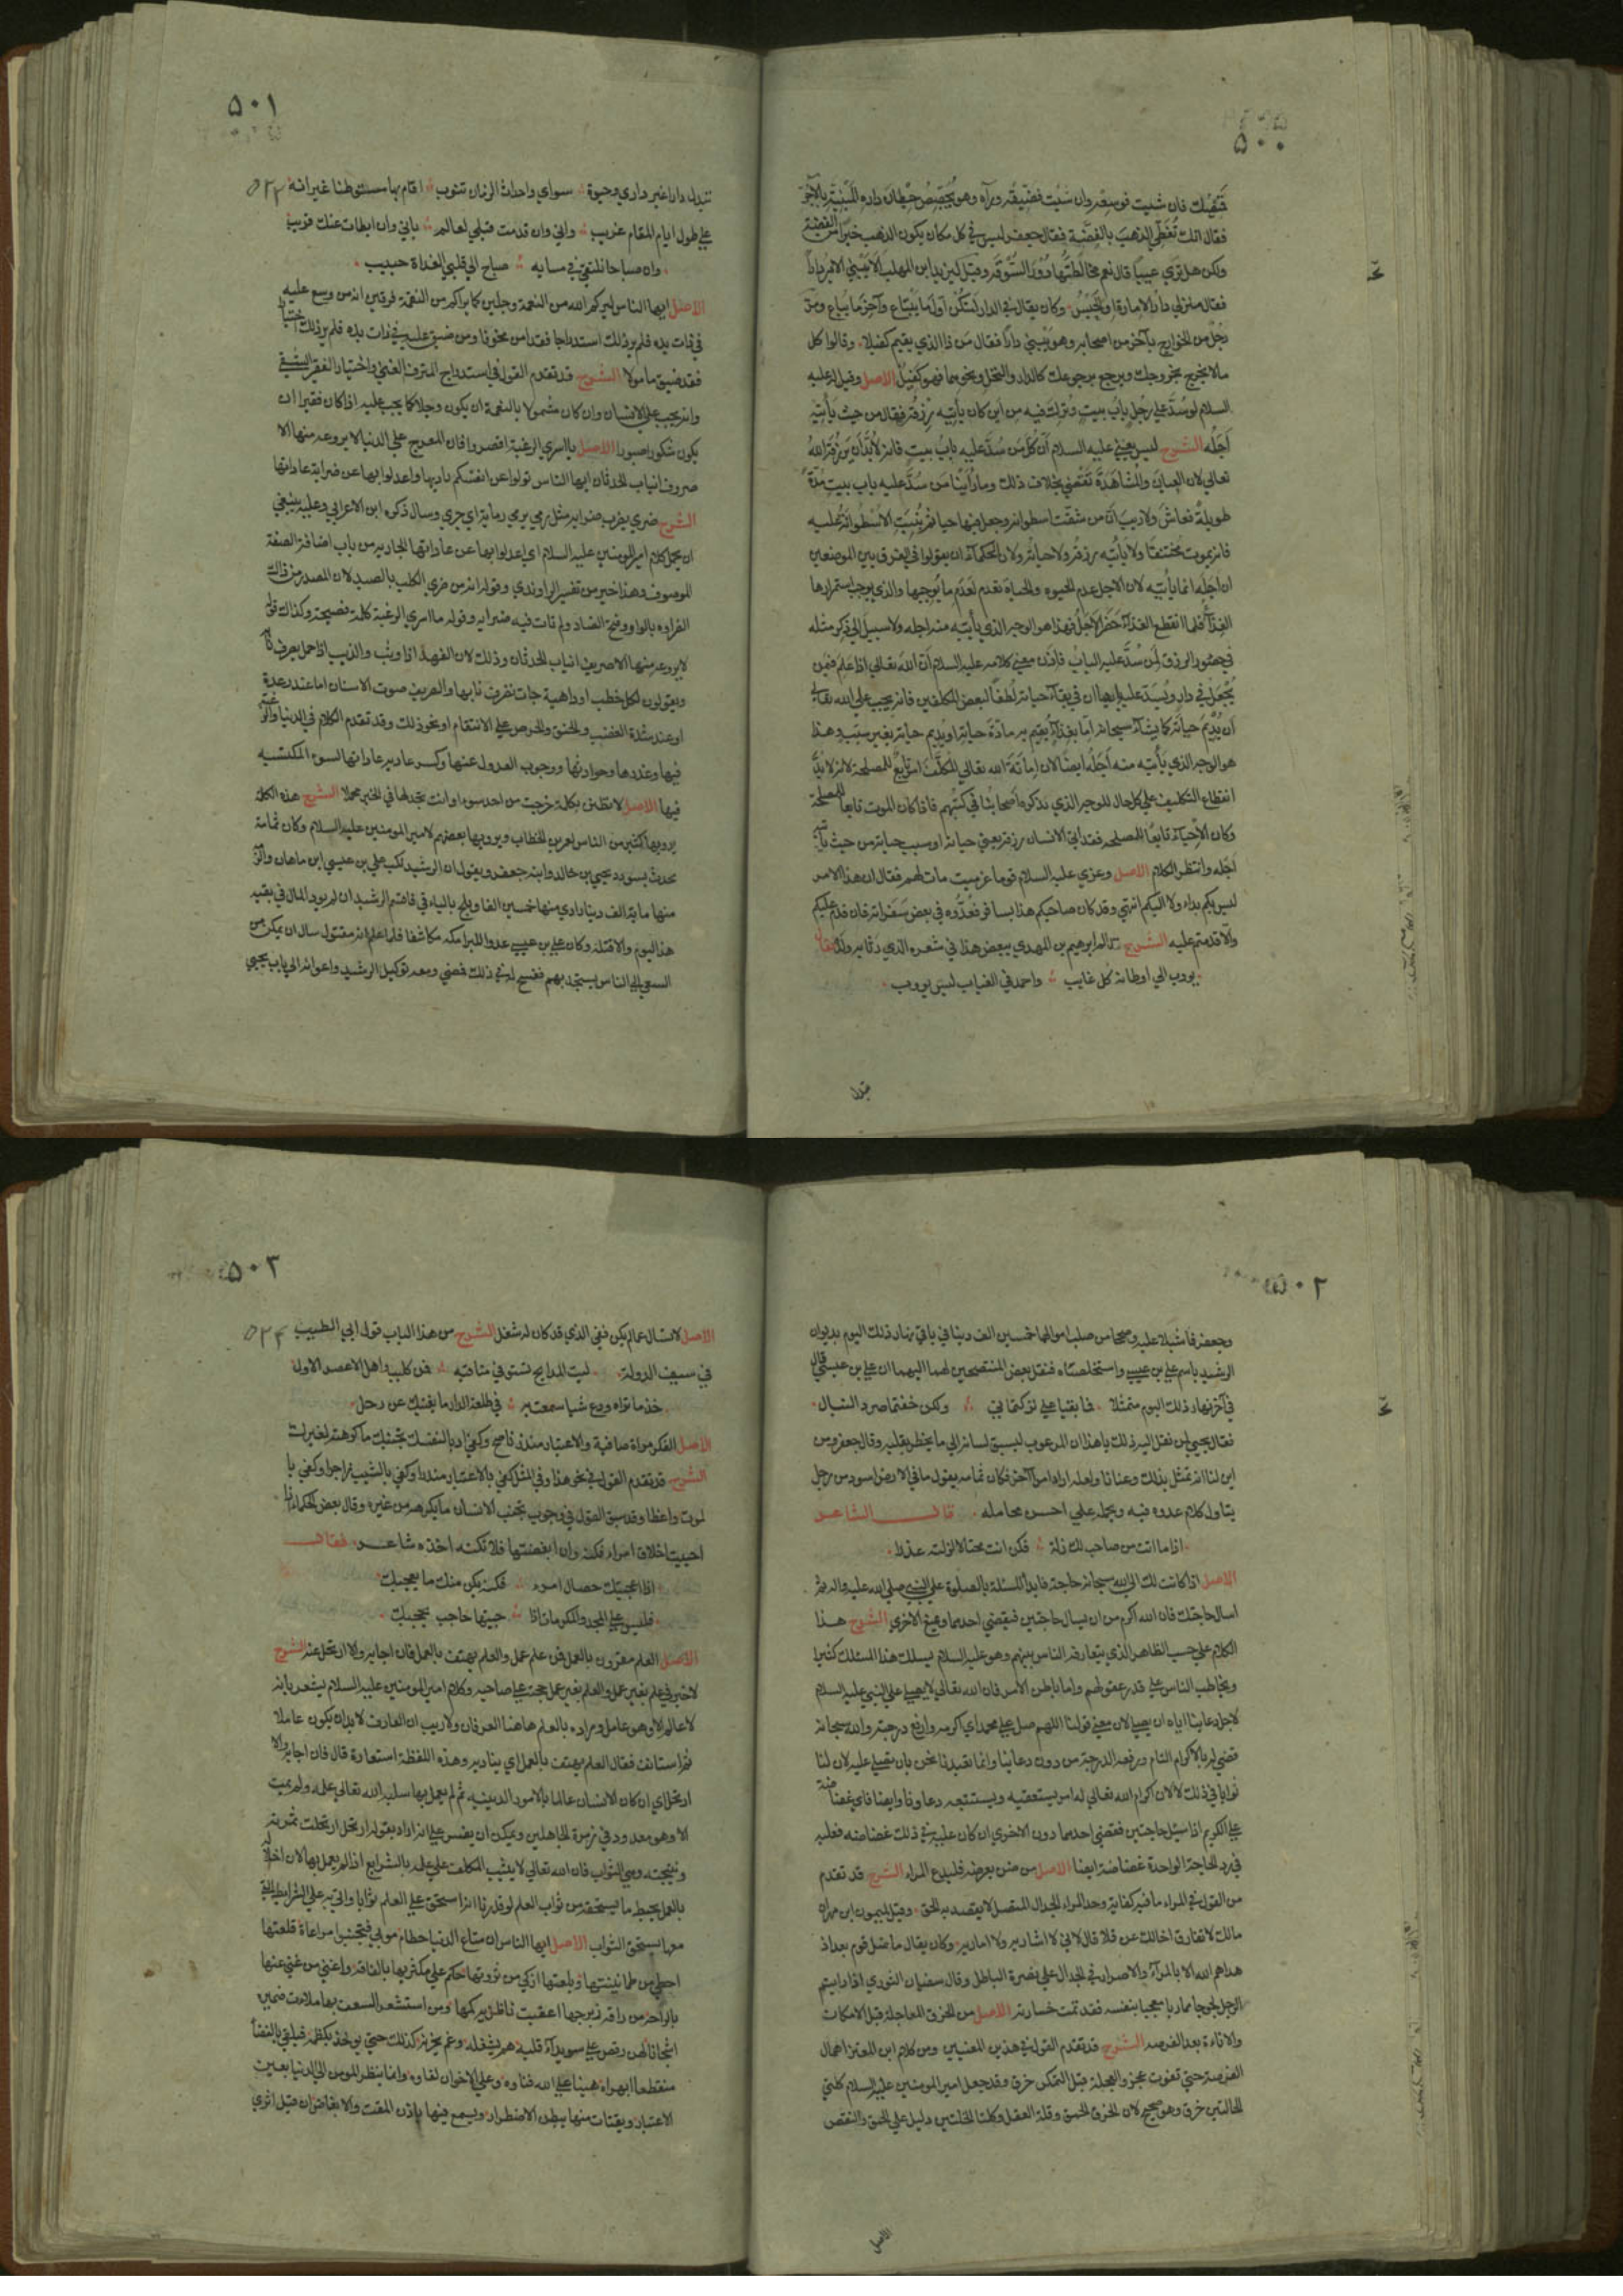 ٥٠٠
فقال انك تغطي الذهب بالفضة فقال جعفر ليس في كل مكان يكون الذهب خيرا من الفضة
ولكن هل تري عيبا قال نعم مخالطتها دور السوقة وقيل ليزيد ابن المهلب الا تبني الامير دارا
فقال منزلي دار الامارة او الحبس وكان يقال في الدار لتكن اول ما يبتاع وآخر ما يباع ومر
رجل من الخوارج بآخر من اصحابهم وهو يبني دارا فقال من ذا الذي يقيم كفيلا وقالوا كل
مالا يخرج بخروجك ويرجع برجوعك كالدار والنخل ونحوهما فهو كفيل الاصل وقيل له عليه
السلام لو سد علي رجل باب بيت وترك فيه من اين كان يأتيه رزقه فقال من حيث يأتيه
اجله الشرح ليس يعني عليه السلام ان كل من سد عليه باب بيت فانه لابد ان يرزقه الله
تعالي لان العيان والمشاهدة تقتضي بخلاف ذلك وما رأينا من سد عليه باب بيت مدة
طويلة فعاش ولا ريب ان من شقت اسطوانة وجعل فيها حيا ثم بنيت الاسطوانة عليه
فانه يموت مختنقا ولا يأتيه رزقه ولا حياته ولان للحكماء ان يقولوا في الفرق بين الموضعين
ان اجله انما يأتيه لان الاجل عدم الحيوه والحياة تعدم لعدم ما يوجبها والذي يوجب استمرارها
الغذاء فلما انقطع الغذاء حضر الاجل فهذا هو الوجه الذي يأتيه منه اجله ولا سبيل الي ذكر مثله
في حضور الرزق لمن سد عليه الباب فاذن معني كلامه عليه السلام ان الله تعالي اذا علم فيمن
يجعل في دار ويسد عليه بابها ان في بقاء حياته لطفا لبعض المكلفين فانه يجب علي الله تعالي
ان يديم حياته كما يشاء سبحانه اما بغذاء يقيم به مادة حياته او يديم حياته بغير سبب وهذا
هو الوجه الذي يأتيه منه اجله ايضا لان اماتة الله تعالي المكلف امر تابع للمصلحة لانه لابد
انقطاع التكليف علي كل حال للوجه الذي نذكره اصحابنا في كتبهم فاذا كان الموت تابعا للمصلحة
وكان الاحياء تابعا للمصلحة فقد اتي الانسان رزقه يعني حياته او سبب حياته من حيث يأتيه
اجله وانتظم الكلام الاصل وعزي عليه السلام قوما عن ميت مات لهم فقال ان هذا الامر
ليس بكم بداء ولا اليكم انتهي وقد كان صاحبكم هذا يسافر فعدوه في بعض سفراته فان قدم عليكم
والا قدمتم عليه الشرح قال ابراهيم بن المهدي ببعض هذا في شعره الذي رثا به ولده فقال
يؤوب الي اوطانه كل غايب واحمد في الغياب ليس يؤوب
تبدل
٥٠١
تبدل دارا غير داري وجيرة سواي واحداث الزمان تنوب اقام بها مستوطنا غير انه
علي طول ايام المقام غريب واني وان قدمت قبلي لعالم باني وان ابطات عنك قريب
وان صباحا نلتقي في مسايه صباح الي قلبي الغداة حبيب
الاصل ايها الناس ليركم الله من النعمة وجلين كما يراكم من النقمة فرقين انه من وسع عليه
في ذات يده فلم ير ذلك استدراجا فقد امن مخوفا ومن ضيق عليه في ذات يده فلم ير ذلك اختبارا
فقد ضيع مامولا الشرح قد تقدم القول في استدراج المترف الغني واختبار الفقير الشقي
وانه يجب علي الانسان وان كان مشمولا بالنعمة ان يكون وجلا كما يجب عليه اذا كان فقيرا ان
يكون شكورا صبورا الاصل يا اسري الرغبة اقصروا فان المعرج علي الدنيا لا يروعه منها الا
صريف انياب الحدثان ايها الناس تولوا عن انفسكم تاديبها واعدلوا بها عن ضراية عاداتها
الشرح ضري يضرب ضراية مثل رمي يرمي رماية اي جري وسال ذكره ابن الاعرابي وعليه ينبغي
ان يحمل كلام امير المومنين عليه السلام اي اعدلوا بها عن عاداتها الجارية من باب اضافة الصفة
الموصوف وهذا خير من تفسير الراوندي وقوله انه من ضري الكلب بالصيد لان المصدر من ذلك
الضراوه بالواو وفتح الضاد ولم يات فيه ضراية وقوله يا اسري الرغبة كلمة فصيحة وكذلك قوله
لا يروعه منها الا صريف انياب الحدثان وذلك لان الفهد اذا وثب والذيب اذا حمل يصرف نابه
ويقولون لكل خطب او داهية جات تصرف نابها والصريف صوت الاسنان اما عند رعدة
او عند شدة الغضب والحنق والحرص علي الانتقام او نحو ذلك وقد تقدم الكلام في الدنيا والرغبة
فيها وغدرها وحوادثها ووجوب العدول عنها وكسر عادية عاداتها السوء المكتسبة
فيها الاصل لا تظنن بكلمة خرجت من احد سوءا وانت تجد لها في الخير محملا الشرح هذه الكلمة
يرويها كثير من الناس لعمر بن الخطاب ويرويها بعضهم لامير المومنين عليه السلام وكان ثمامة
يحدث بسودد يحيي بن خالد وابنه جعفر ويقول ان الرشيد نكب علي بن عيسي ابن ماهان والزمه
منها ماية الف دينار ادي منها خمسين الفا ويلح بالباقي فاقسم الرشيد ان لم يود المال في بقية
هذا اليوم والا قتله وكان علي بن عيسي عدوا للبرامكه مكاشفا فلما علم انه مقتول سال ان يمكن من
السعي الي الناس يستنجد بهم ففسح له في ذلك فمضي ومعه توكيل الرشيد واعوانه الي باب يحيي
٥٠٢
وجعفر فاشبلا عليه وصححا من صلب اموالهما خمسين الف دينار في باقي نهار ذلك اليوم بديوان
الرشيد باسم علي بن عيسي واستخلصاه فنقل بعض المتنصحين لهما اليهما ان علي بن عيسي قال
في آخر نهار ذلك اليوم متمثلا فما بقيا علي تركتماني ولكن خفتما صرد النبال
فقال يحيي لمن نقل اليه ذلك يا هذا ان المرعوب ليسبق لسانه الي ما يخطر بقلبه وقال جعفر ومن
اين لنا انه تمثل بذلك وعنانا ولعله اراد امرا آخر فكان ثمامه يقول ما في الارض اسود من رجل
يتاول كلام عدوه فيه ويحمله علي احسن محامله قال الشاعر
اذا ما اتت من صاحب لك زلة فكن انت محتالا لزلته عذرا
الاصل اذا كانت لك الي الله سبحانه حاجة فابدأ المسئلة بالصلوة علي النبي صلي الله عليه واله ثم
اسال حاجتك فان الله اكرم من ان يسال حاجتين فيقضي احديهما ويمنع الاخري الشرح هذا
الكلام علي حسب الظاهر الذي يتعارفه الناس بينهم وهو عليه السلام يسلك هذا المسلك كثيرا
ويخاطب الناس علي قدر عقولهم واما باطن الامر فان الله تعالي لا يصلي علي النبي عليه السلام
لاجل دعاينا اياه ان يصلي لان معني قولنا اللهم صل علي محمد اي اكرمه وارفع درجته والله سبحانه
قضي له بالاكرام التام ورفعة الدرجة من دون دعاينا وانما تعبدنا نحن بان نصلي عليه لان لنا
ثوابا في ذلك لا لان اكرام الله تعالي له امر يستعقبه ويستتبعه دعاونا وايضا فاي غضاضة
علي الكريم اذا سيل حاجتين فقضي احديهما دون الاخري ان كان عليه في ذلك غضاضة فعليه
في رد الحاجة الواحدة غضاضة ايضا الاصل من ضن بعرضه فليدع المراء الشرح قد تقدم
من القول في المراء ما فيه كفاية وحد المراء الجدال المتصل لا يقصد به الحق وقيل لميمون ابن مهران
مالك لا تفارق اخا لك عن قلا قال لاني لا اشاريه ولا اماريه وكان يقال ما ضل قوم بعد اذ
هداهم الله الا بالمرآء والاصرار في الجدال علي نصرة الباطل وقال سفيان الثوري اذا رايتم
الرجل لجوجا مماريا معجبا بنفسه فقد تمت خسارته الاصل من الخرق المعاجلة قبل الامكان
والاناءة بعد الفرصة الشرح قد تقدم القول في هذين المعنيين ومن كلام ابن المعتز اهمال
الفرصة حتي تفوت عجز والعجلة قبل التمكن خرق وقد جعل امير المومنين عليه السلام كلتي
الحالتين خرق وهو صحيح لان الخرق الحمق وقلة العقل وكلتا الحالتين دليل علي الحمق والنقص
الاصل
٥٠٣
الاصل لا تسال عما لم يكن ففي الذي قد كان لك شغل الشرح من هذا الباب قول ابي الطيب
في سيف الدولة ليت المدايح تستوفي مناقبه فمن كليب واهل الاعصر الاول
خذ ما تراه ودع شيا سمعت به في طلعة البدر ما يغنيك عن زحل
الاصل الفكر مرآة صافية والاعتبار منذر ناصح وكفي ادبا لنفسك تجنبك ما كرهته لغيرك
الشرح قد تقدم القول في نحو هذا وفي المثل كفي بالاعتبار منذرا وكفي بالشيب زاجرا وكفي با
لموت واعظا وقد سبق القول في وجوب تجنب الانسان ما يكرهه من غيره وقال بعض الحكماء اذا
احببت اخلاق امرء فكنه وان ابغضتها فلا تكنه اخذه شاعر فقال
اذا اعجبتك خصال امرء فكنه يكن منك ما يعجبك
فليس علي المجد والمكرمات اذا جيتها حاجب يحجبك
الاصل العلم مقرون بالعمل فمن علم عمل والعلم يهتف بالعمل فان اجابه والا ارتحل عنه الشرح
لا خير في علم بغير عمل والعلم بغير عمل حجة علي صاحبه وكلام امير المومنين عليه السلام يشعر بانه
لا عالم الا وهو عامل ومراده بالعلم هاهنا العرفان ولا ريب ان العارف لابد ان يكون عاملا
ثم استانف فقال العلم يهتف بالعمل اي يناديه وهذه اللفظة استعارة قال فان اجابه والا
ارتحل اي ان كان الانسان عالما بالامور الدينية ثم لم يعمل بها سلبه الله تعالي علمه ولم يمت
الا وهو معدود في زمرة الجاهلين ويمكن ان يفسر علي انه اراد بقوله ارتحل ارتحلت ثمرته
ونتيجته وهي الثواب فان الله تعالي لا يثيب المكلف علي علمه بالشرايع اذا لم يعمل بها لان اخلاله
بالعمل يحبط ما يستحقه من ثواب العلم لو قدرنا انه استحق علي العلم ثوابا واتي به علي الشرايط التي
معها يستحق الثواب الاصل ايها الناس ان متاع الدنيا حطام موبي فتجنبوا مرعاة قلعتها
احظي من طمانينتها وبلغتها ازكي من ثروتها حكم علي مكثر بها بالفاقة واعني من غني عنها
بالراحة من راقه زبرجها اعقبت ناظريه كمها ومن استشعر الشعف بها ملات ضميره
اشجانا لهن رقص علي سويداء قلبه هم يشغله وغم يحزنه كذلك حتي يوخذ بكظمه فيلقي بالفضاء
منقطعا ابهراه هينا علي الله فناوه وعلي الاخوان لقاوه وانما ينظر المومن الي الدنيا بعين
الاعتبار ويقتات منها ببطن الاضطرار ويسمع فيها باذن المقت والابغاض ان قيل اثري